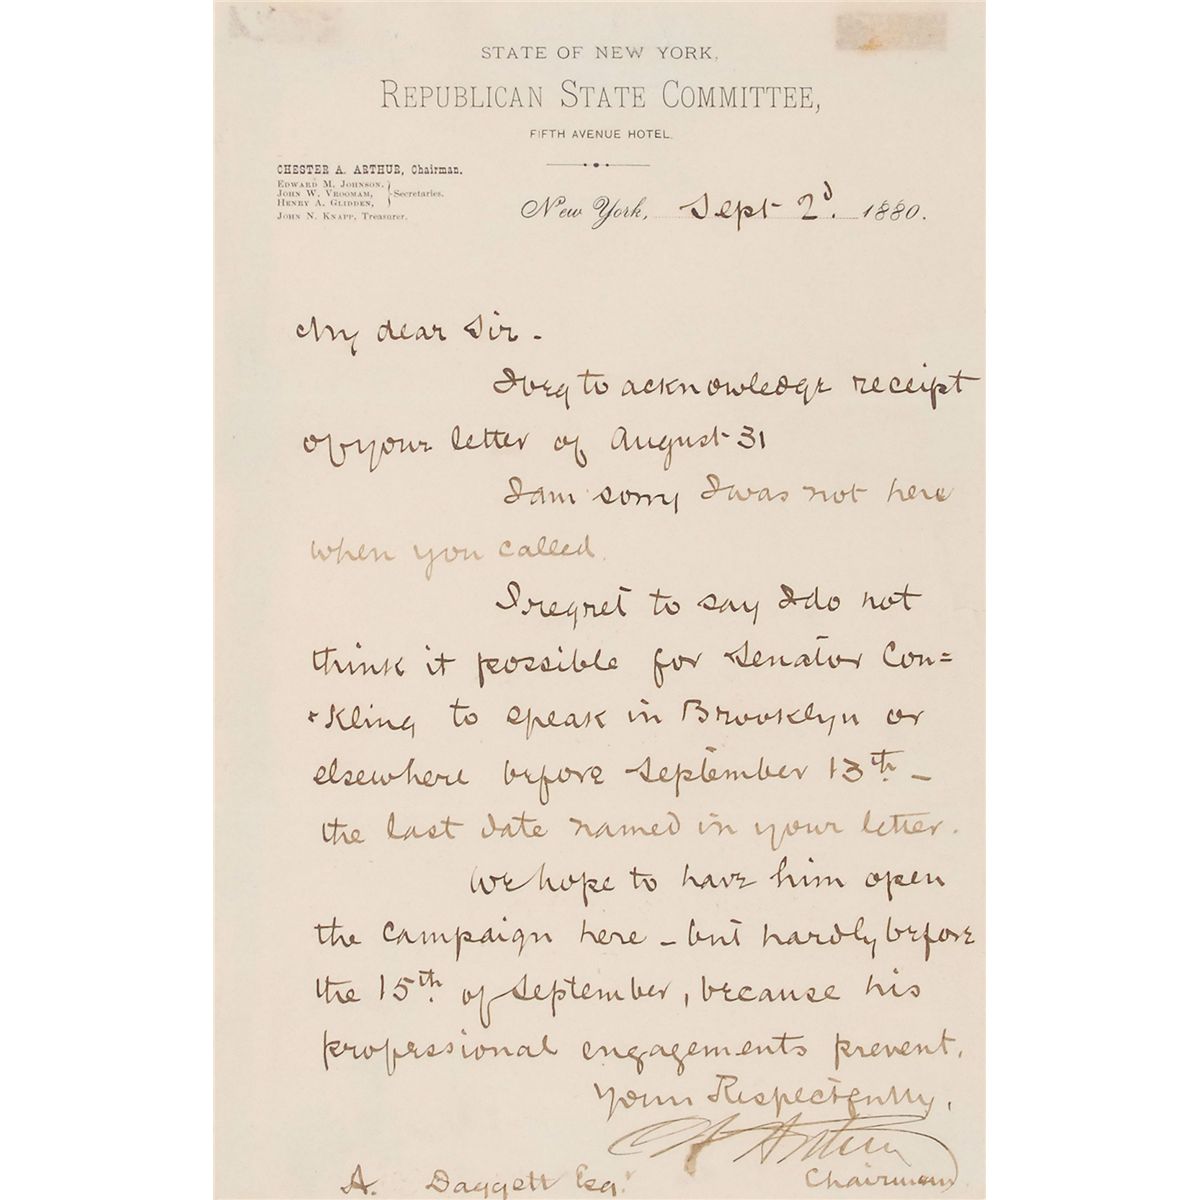 STATE OF NEW YORK,
REPUBLICAN STATE COMMITTEE,
FIFTH AVENUE HOTEL.
CHESTER A. ARTHUR, Chairman.
EDWARD M. JOHNSON,
JOHN W. VROOMAM, } Secretaries.
HENRY A. GLIDDEN,
JOHN N. KNAPP, Treasurer.
New York, Sept 2d. 1880.
My dear Sir -
I beg to acknowledge receipt
of your letter of August 31
I am sorry I was not here
when you called.
I regret to say I do not
think it possible for Senator Con=
-kling to speak in Brooklyn or
elsewhere before September 13th -
the last date named in your letter.
We hope to have him open
the campaign here - but hardly before
the 15th of September, because his
professional engagements prevent.
Yours Respectfully,
C A Arthur
Chairman
A. Daggett Esqr